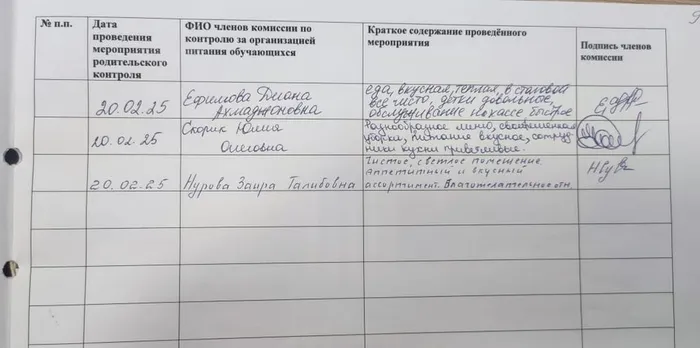 № п.п.
Дата
проведения
мероприятия
родительского
контроля
ФИО членов комиссии по
контролю за организацией
питания обучающихся
Краткое содержание проведённого
мероприятия
Подпись членов
комиссии
20.02.25
Ефимова Диана
Ахмаджоновна
еда, вкусная, теплая, в столовой
все чисто, дети довольное,
обслуживание на кассе быстрое
20.02.25
Скорик Юлия
Олеговна
Разнообразное меню, своевременная
уборка, питание вкусное, сотруд-
ники кухни приветливые.
20.02.25
Нурова Заира Талибовна
Чистое, светлое помещение
Аппетитный и вкусный
ассортимент. Благожелательное отн.